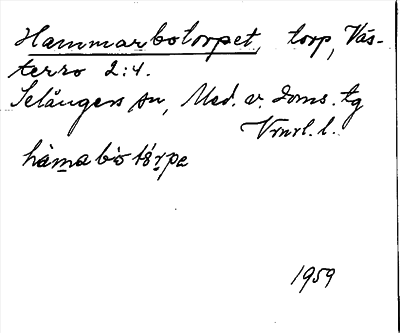 Hammarbotorpet, torp, Väs-
terro 2:4.
Selångers sn, Med. v. doms. tg
Vnrl. l.
hàmabòtórpe
1959